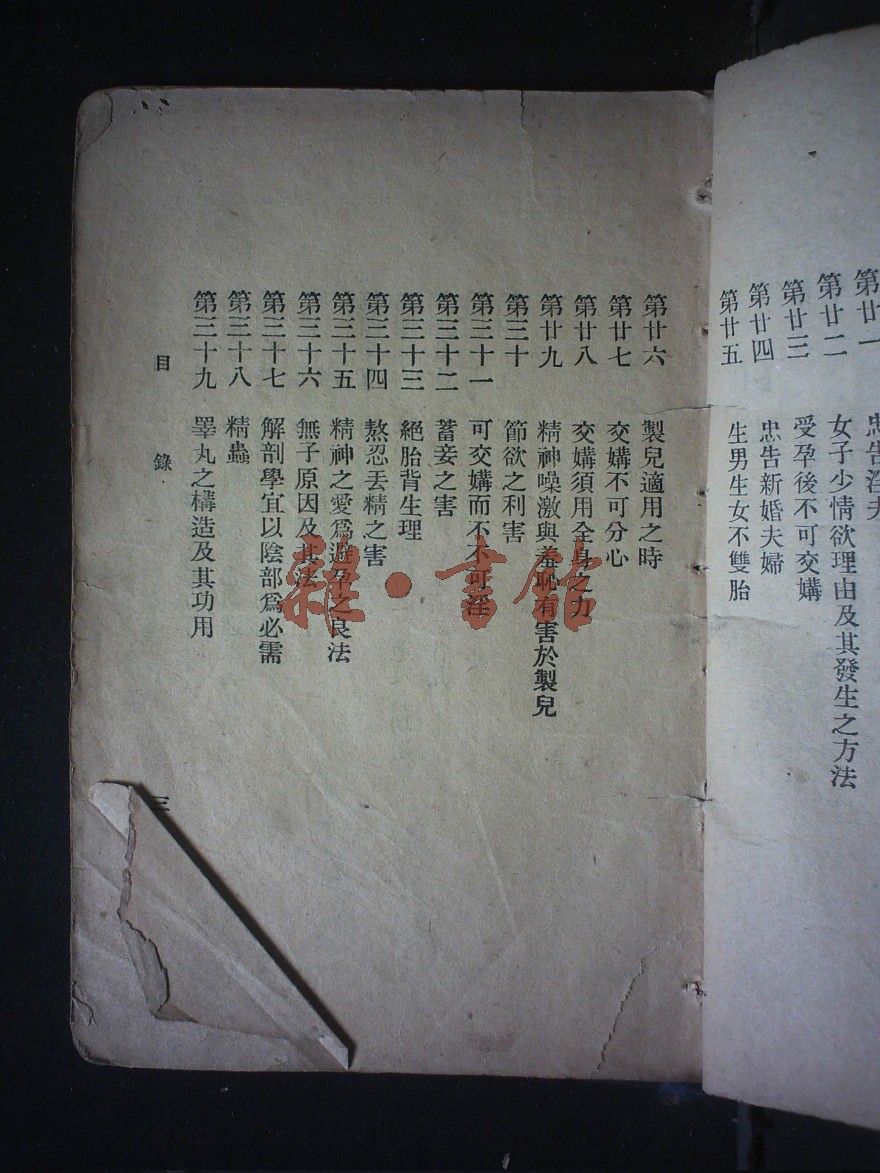 第廿一 忠告淫夫
第廿二 女子少情欲理由及其發生之方法
第廿三 受孕後不可交媾
第廿四 忠告新婚夫婦
第廿五 生男生女不雙胎
第廿六 製兒適用之時
第廿七 交媾不可分心
第廿八 交媾須用全身之力
第廿九 精神噪激與羞恥有害於製兒
第三十 節欲之利害
第三十一 可交媾而不不可淫
第三十二 蓄妾之害
第三十三 絕胎背生理
第三十四 熬忍丟精之害
第三十五 精神之愛爲避孕之良法
第三十六 無子原因及其法
第三十七 解剖學宜以陰部爲必需
第三十八 精蟲
第三十九 睪丸之構造及其功用
目錄
三
雜·書館